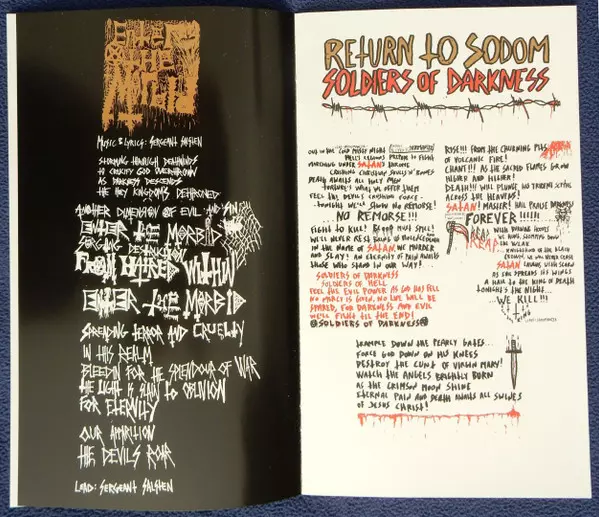 Enter
The
Morbid
Music & Lyrics: Sergeant Salsten
Storming through deathwinds
To crucify God overthrown
As darkness descends
The holy kingdoms dethroned
Another dimension of evil and sin
Enter the Morbid
Surging destruction
From hatred within
Enter the Morbid
Spreading terror and cruelty
In this realm
Bleedin for the splendour of war
The light is slain to oblivion
For eternity
Our apparition
The devils roar
Lead: Sergeant Salsten
Return to Sodom
Soldiers of Darkness
Out in the cold misty night
Hell's legions prepare to fight
Marching under Satan's
Crushing Christian souls 'n' bones
Death awaits all holy men
Torture's what we offer them
Feel the devil's crushing force
Tonight we'll show no remorse!
No Remorse!!!
Fight to kill! Blood must spill!
We'll never rest
In the name of Satan, we murder
and slay! An eternity of pain awaits
those who stand in our way!
Soldiers of Darkness
Soldiers of Hell
Feel the evil power as God has fell
No mercy is given, no live will be
spared, for darkness and evil
we'll fight til the end!
Soldiers of Darkness
Rise!!! From the churning pits
of volcanic fire!
Chant!!! As the sacred flames grow
higher and higher!
Death!!! Will plunge his
across the heavens!
Satan! Master! Hail Prince Darkness
Forever!!!!!!
Reap
Reap
with burning hooves
we ring, down
the weak
of the black
crown, we will never cease
Satan laughs with scorn
as he spreads his wings
A hail to the king of death
Tonight's the night...
...We kill!!!
Trample down the pearly gates...
Force God down on his knees
Destroy the cunt of Virgin Mary!
Watch the angels brightly burn
As the crimson moon shine
Eternal pain and death awaits all swines
of Jesus Christ!